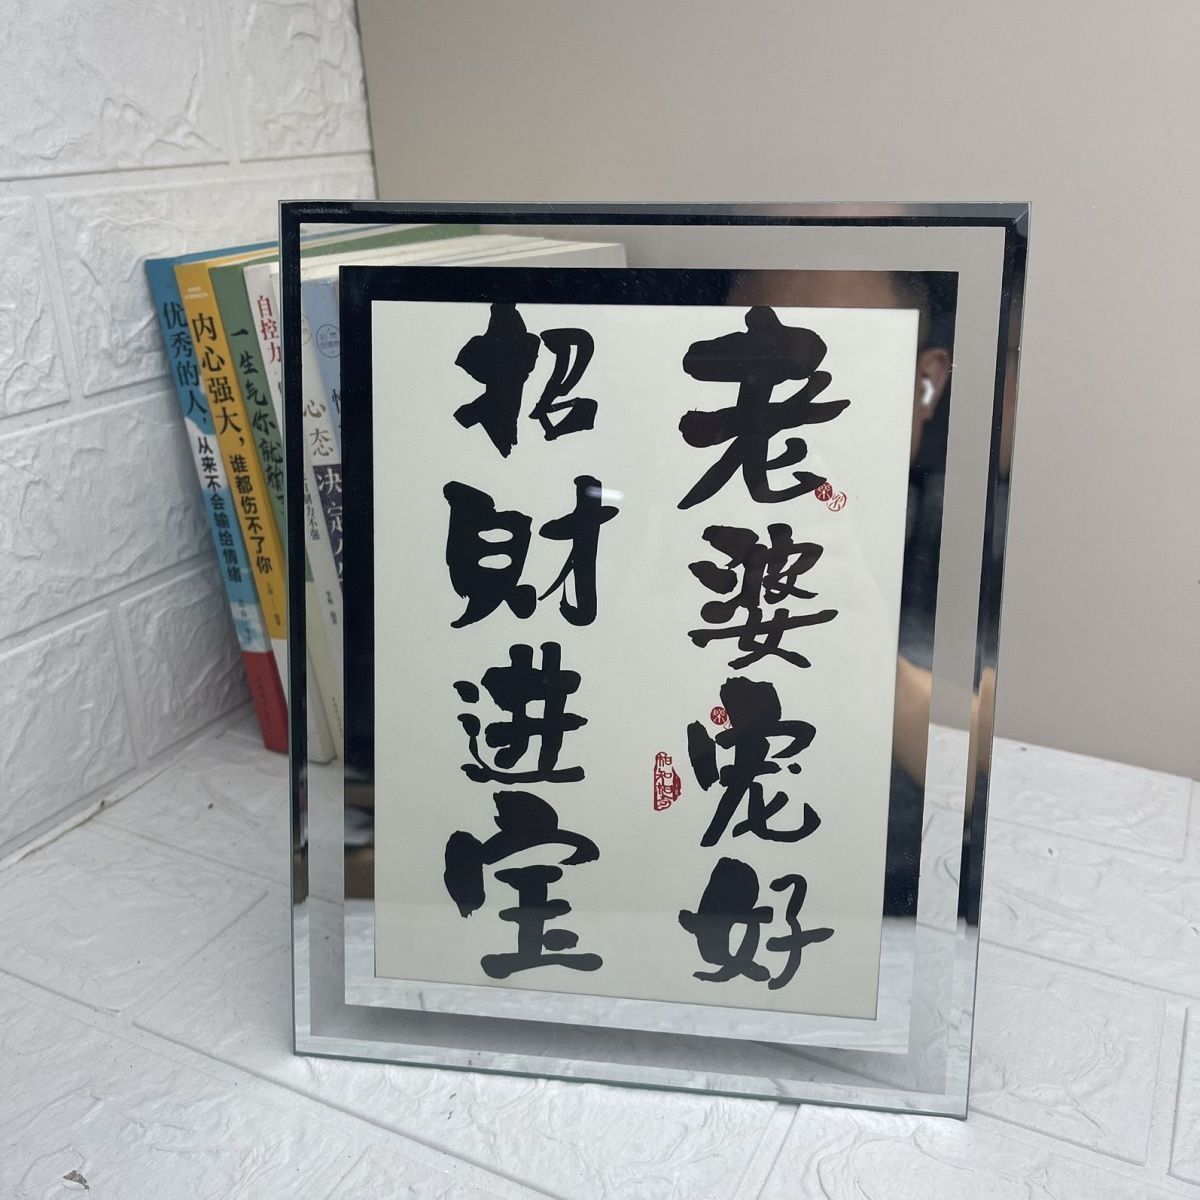 老婆宠好
招财进宝
优秀的人，从来不会输给情绪
内心强大，谁都伤不了你
一生气你就输
自控力
心态决定